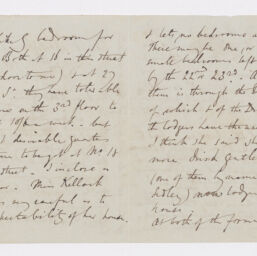 bedroom for
Both at 18 in this street
door to me) & at 27
St they have tolerable
on the 3rd floor to
10/ per week. but
desirable quarters
to be got at No. 18
street. I inclose a
Miss Kellock
is very careful as to
respectability of her house.
& lets, no bedrooms a
there may be one, or
small bedrooms left
by the 22nd 23rd. A
them is through the
of which 2 of the D
the lodgers have the use
I think she said she
more Irish gentle
(one of them by name
) now lodge
house
At both of the former